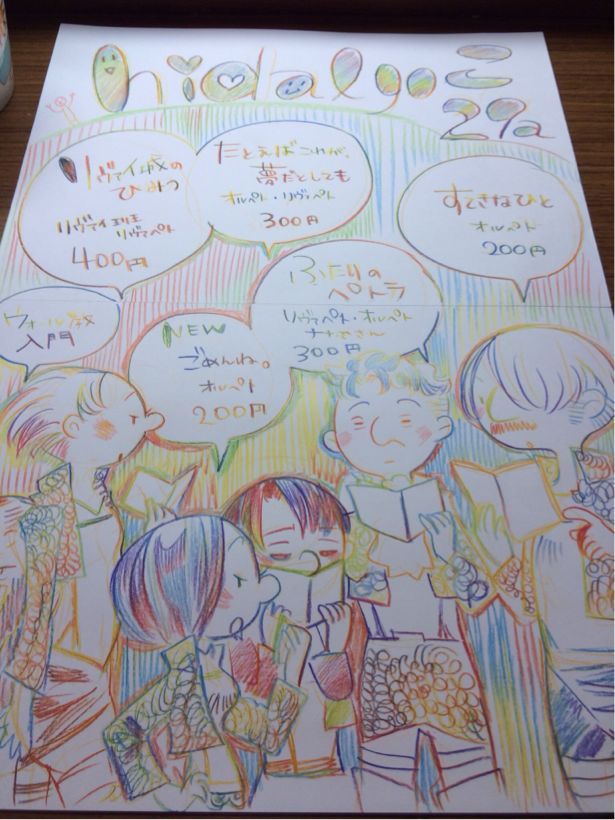 hidalgo こ
29a
リヴァイ城の
ひみつ
リヴァイ班
リヴァペト
400円
たとえばこれが、
夢だとしても
オルペト・リヴァペト
300円
すてきなひと
オルペト
200円
ふたりの
ペトラ
リヴァペト・オルペト
300円
ウォール教
入門
NEW
ごめんね。
オルペト
200円